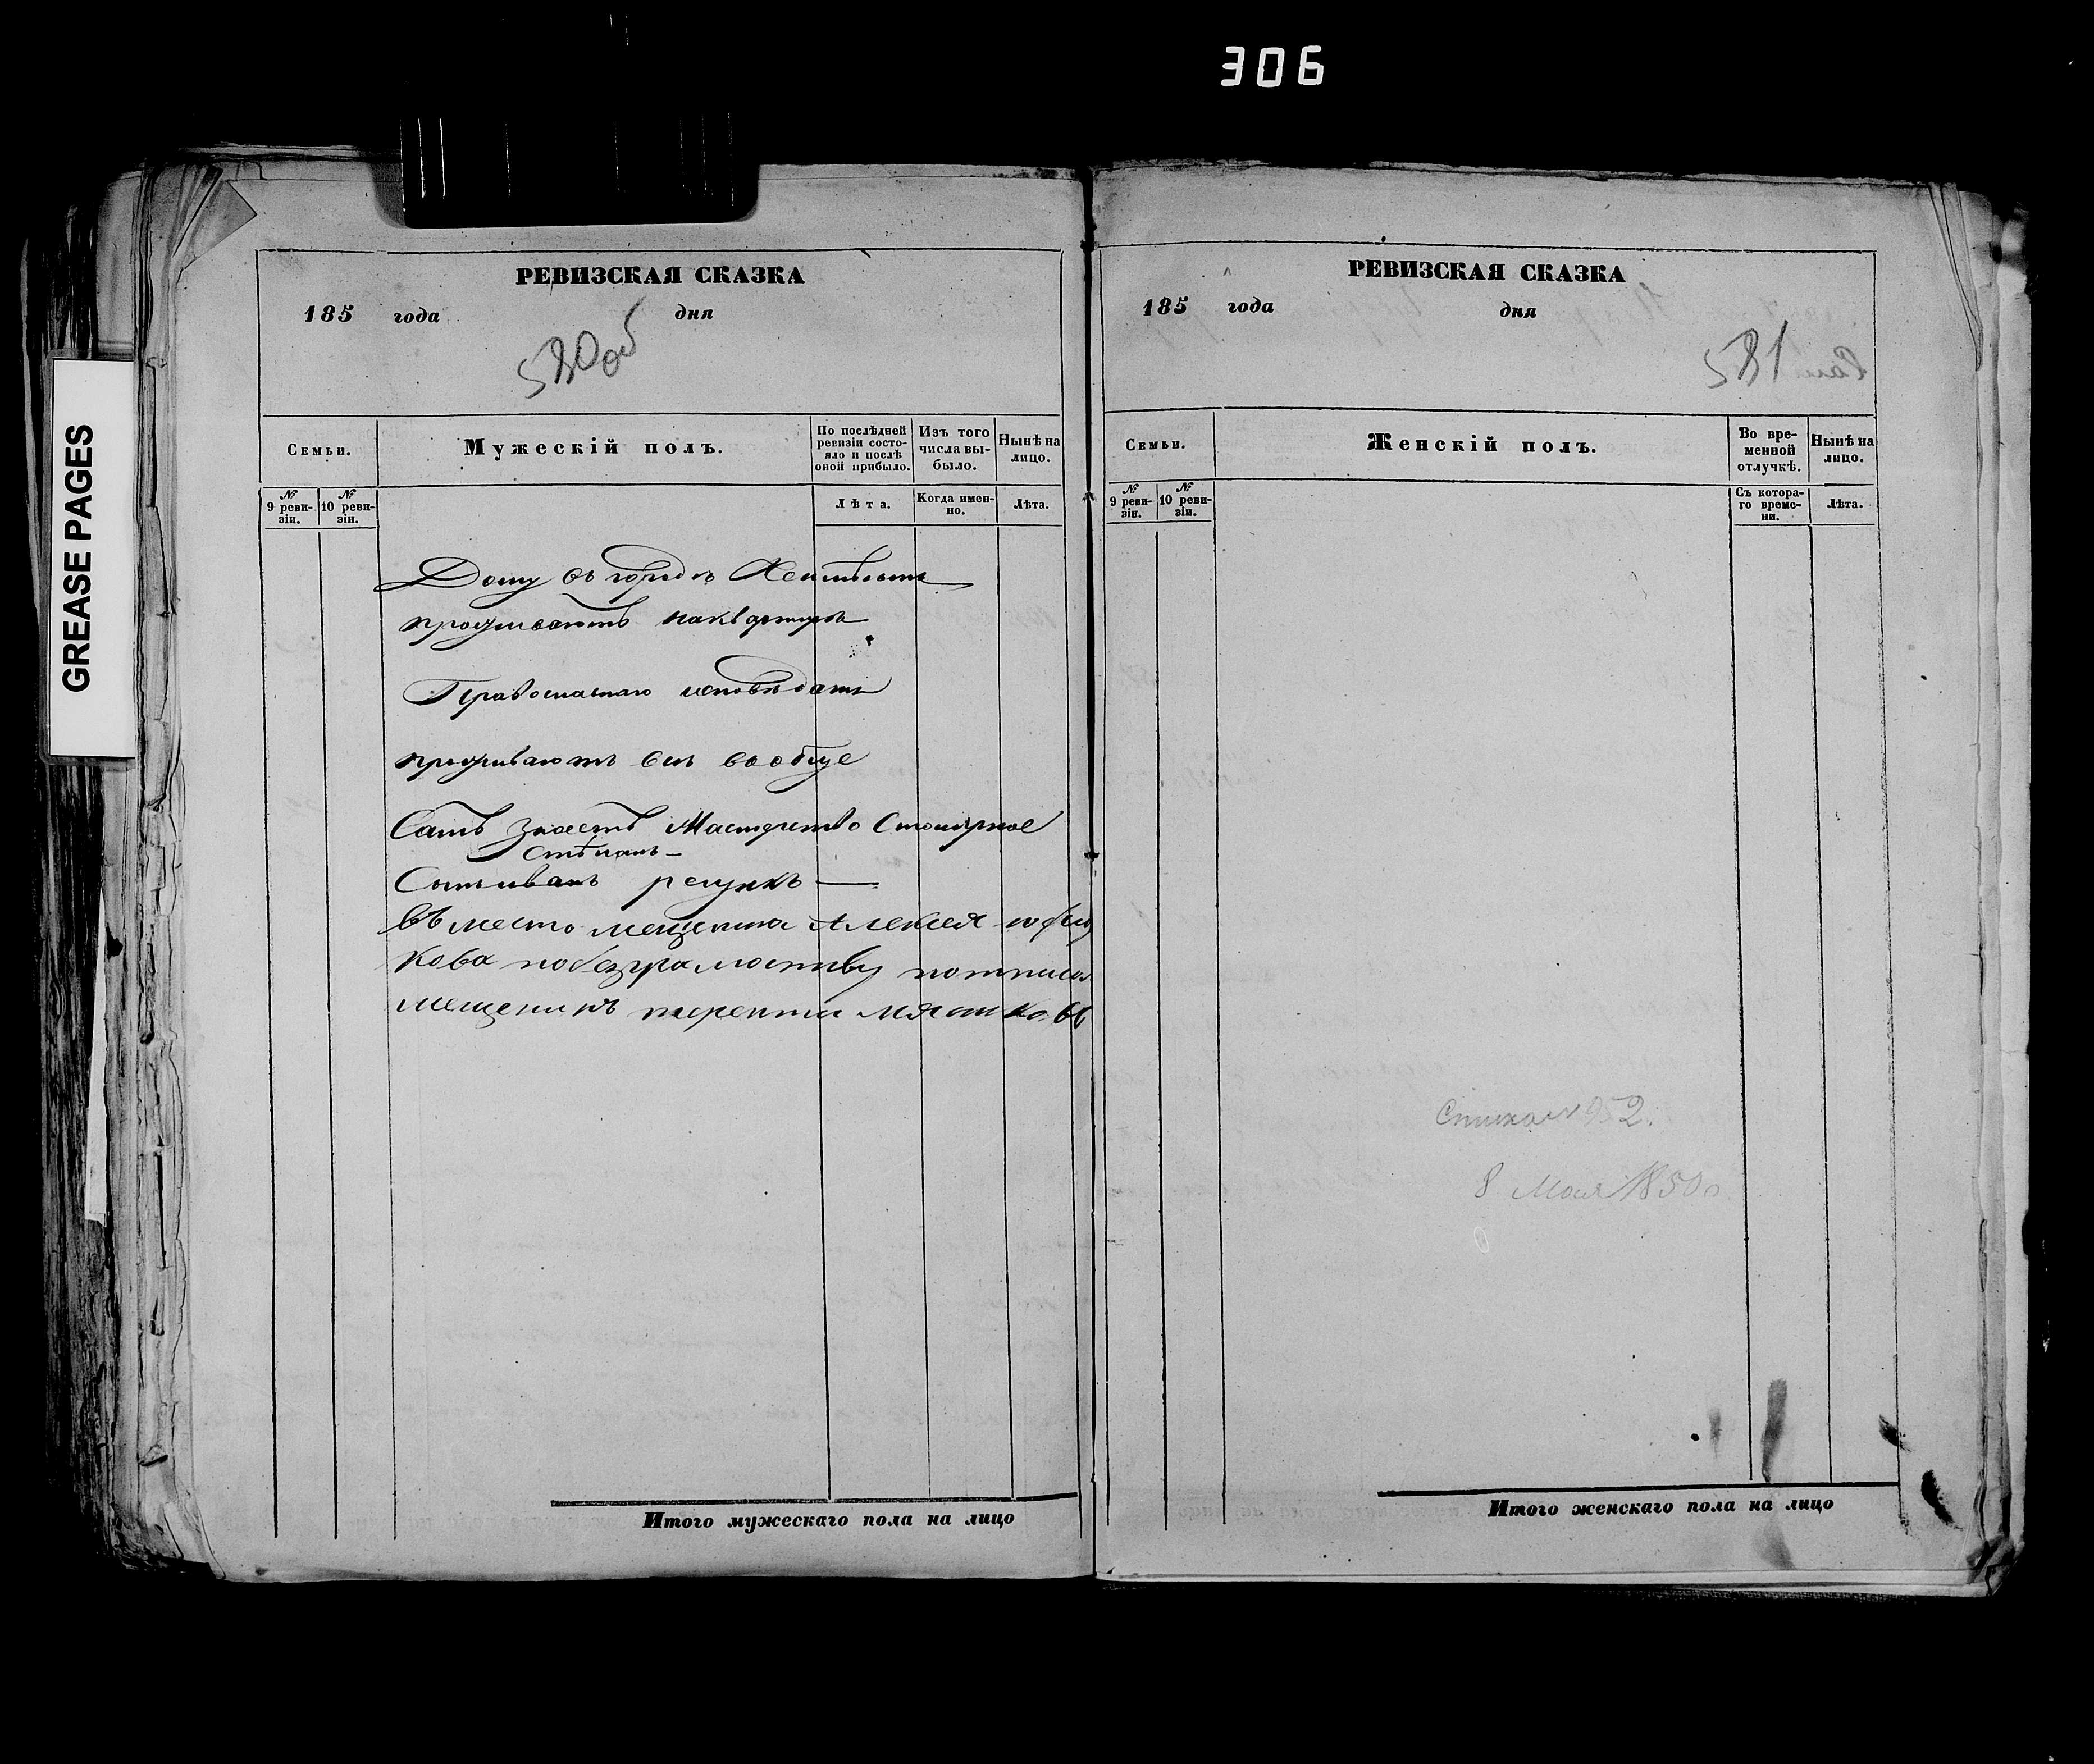 306
GREASE PAGES
РЕВИЗСКАЯ СКАЗКА
185 года дня
580 об
Семьи.
Мужескій полъ.
По послѣдней ревизіи состояло и послѣ оной прибыло.
Изъ того числа выбыло.
Нынѣ на лицо.
№ 9 ревизіи.
№ 10 ревизіи.
Лѣта.
Когда именно.
Лѣта.
Дому въ городѣ
проживаютъ наквартире
Православнаго
проживаютъ вси вообще
Самъ знаетъ Мастерство Столярное
вместо мещенина Алексея
кова побезграмотству
мещенинъ терентий
Итого мужескаго пола на лицо
РЕВИЗСКАЯ СКАЗКА
185 года дня
581
Семьи.
Женскій полъ.
Во временной отлучкѣ.
Нынѣ на лицо.
№ 9 ревизіи.
№ 10 ревизіи.
Съ котораго времени.
Лѣта.
8 Мая 1850
Итого женскаго пола на лицо